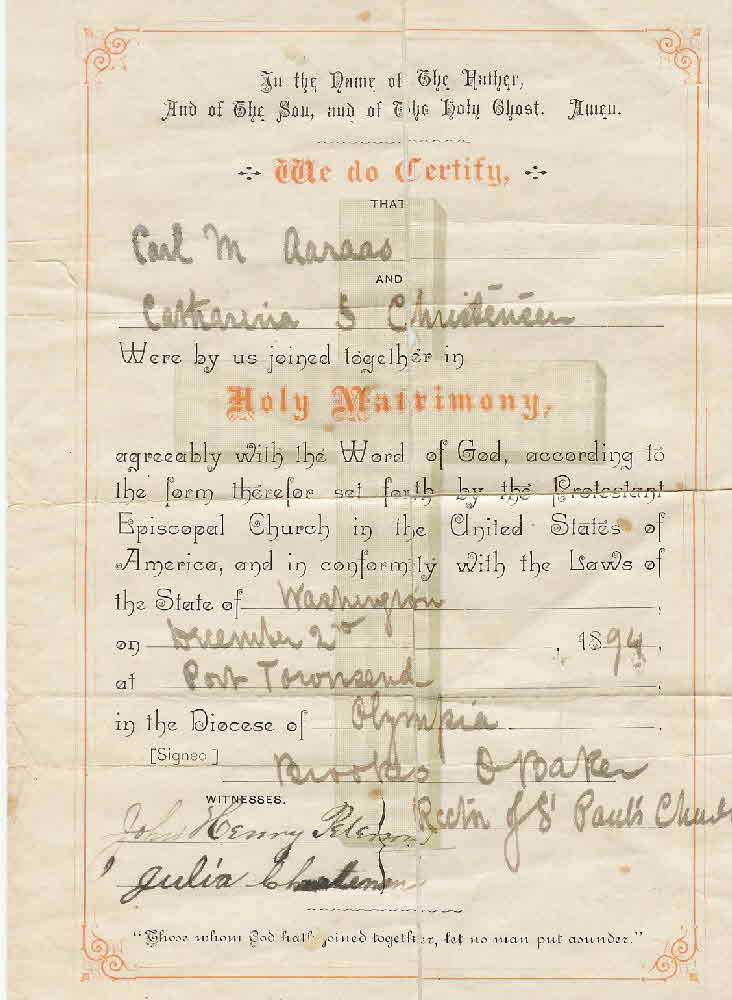 In the Name of The Father,
And of The Son, and of The Holy Ghost. Amen.
We do Certify,
THAT
Carl M Aaraas
AND
Catharina S Christensen
Were by us joined together in
Holy Matrimony,
agreeably with the Word of God, according to
the form therefor set forth by the Protestant
Episcopal Church in the United States of
America, and in conformity with the Laws of
the State of Washington,
on December 2nd, 1894,
at Port Townsend,
in the Diocese of Olympia.
[Signed] Brookes O Baker
WITNESSES. Rector of St Paul's Church
John Henry Peterson
Julia
"Those whom God hath joined together, let no man put asunder."